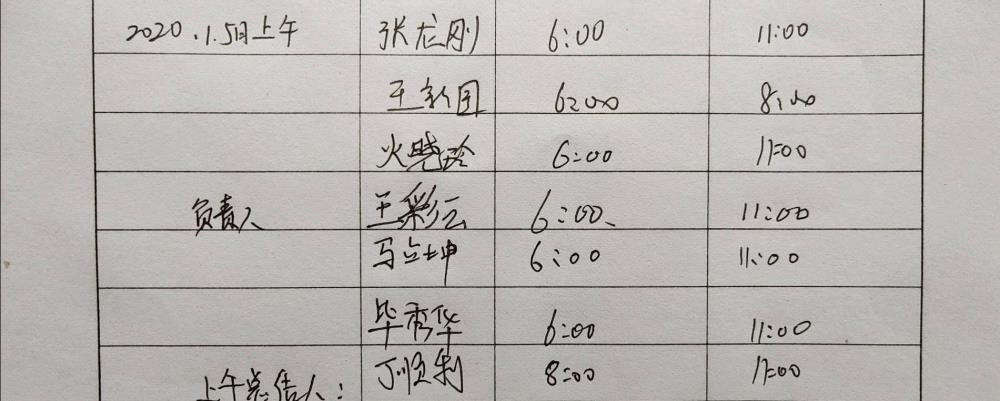 2020.1.5日上午 张龙刚 6:00 11:00
王新国 6:00 8:00
火晓玲 6:00 11:00
负责人 王彩云 6:00 11:00
马立坤 6:00 11:00
毕秀华 6:00 11:00
上午总结人: 丁顺利 8:00 11:00